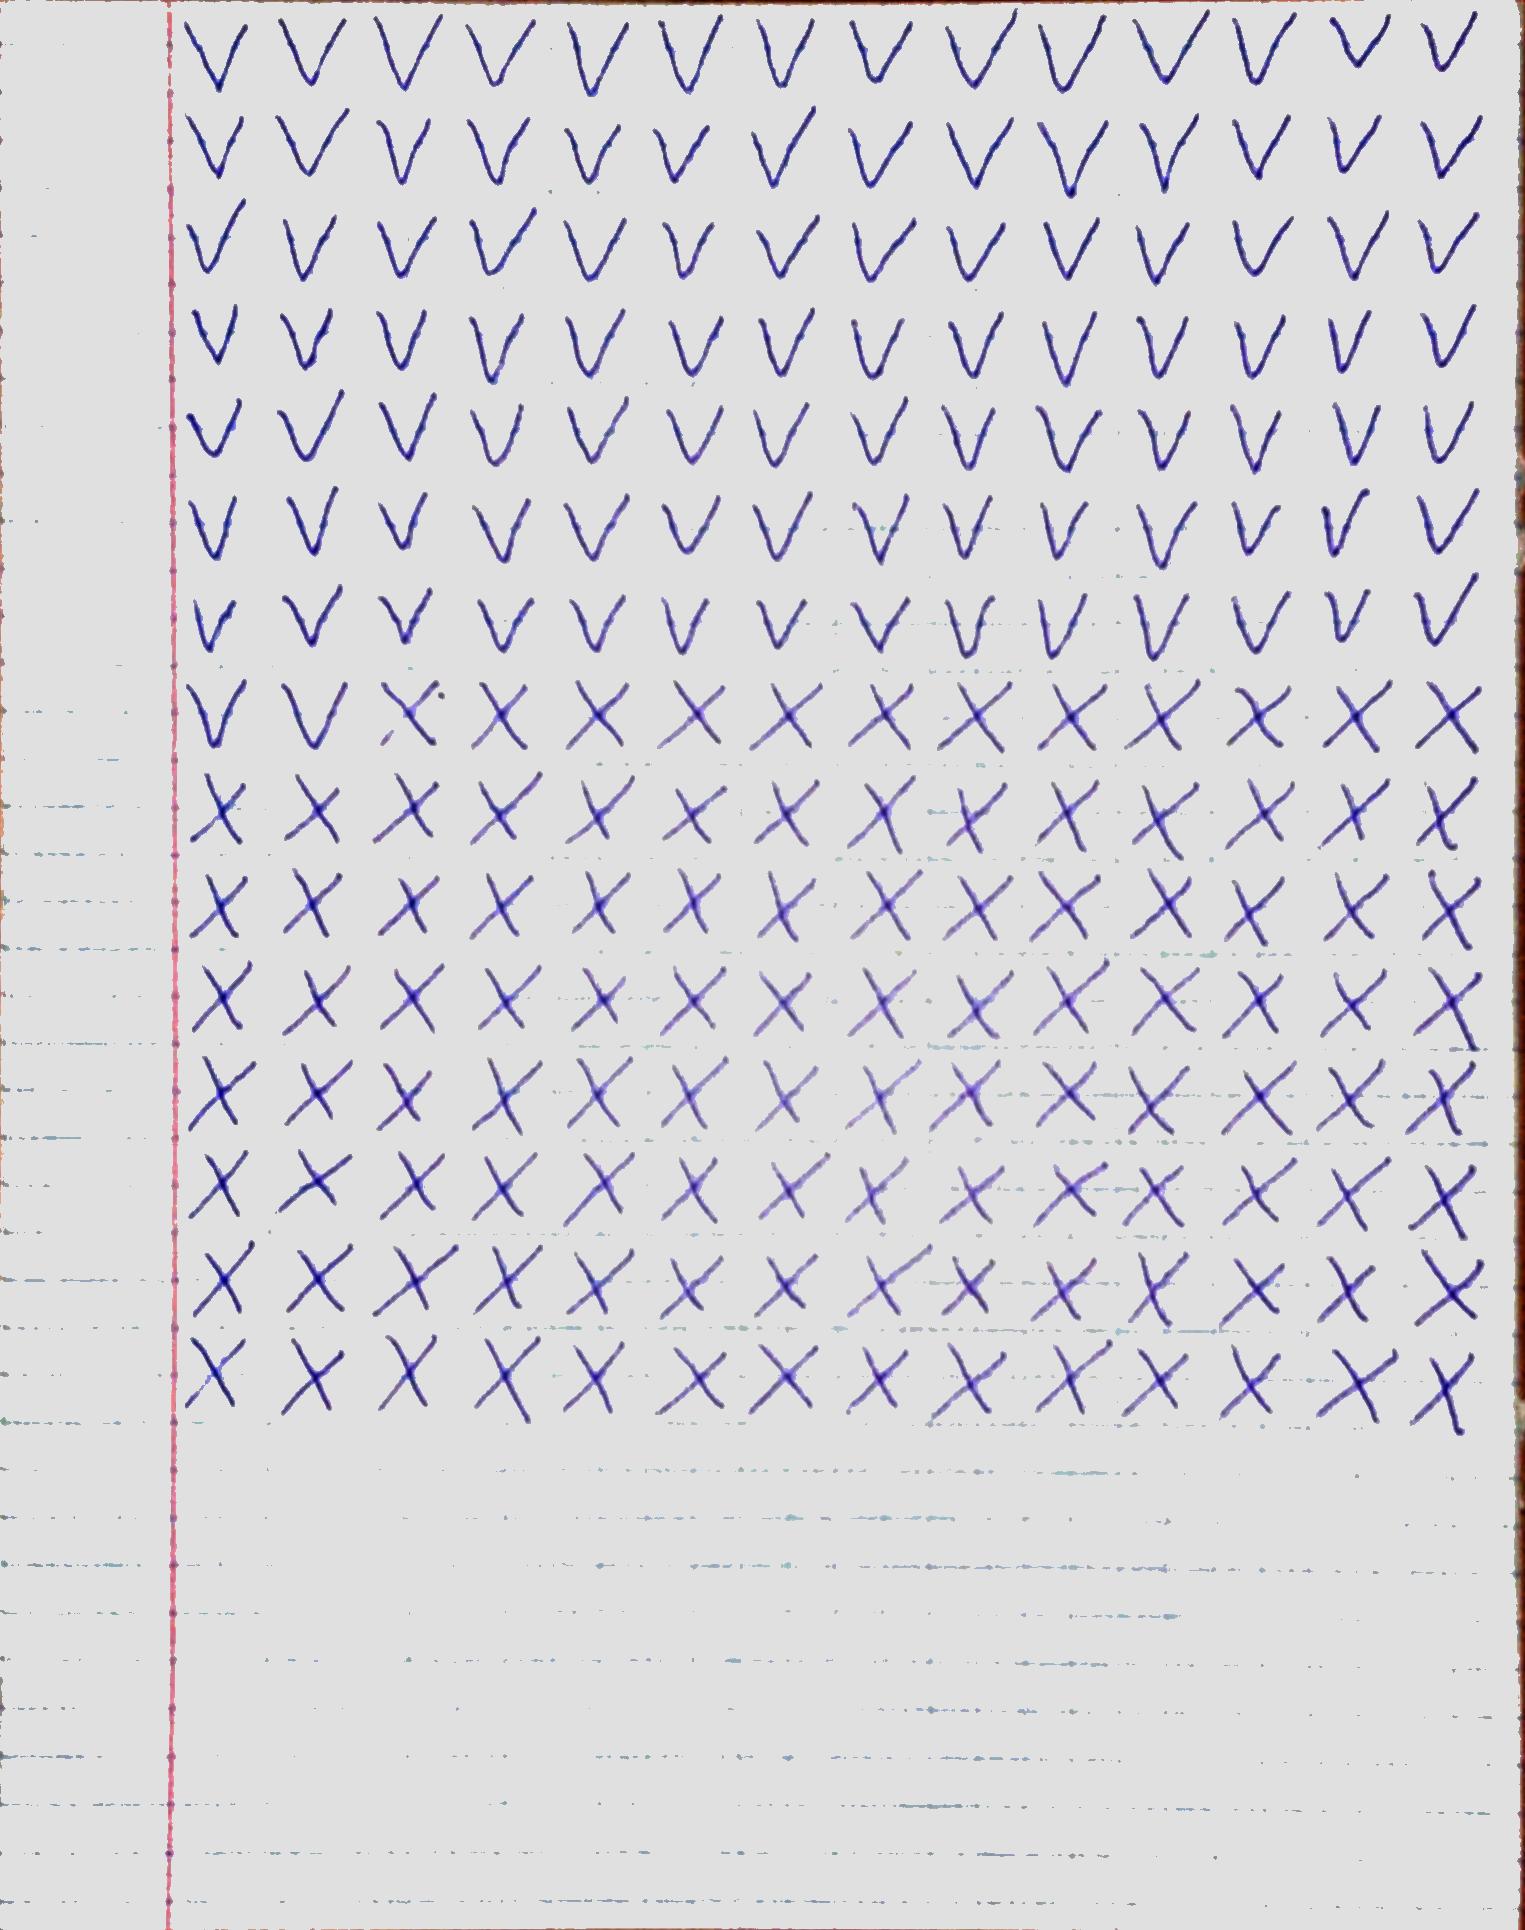 V V V V V V V V V V V V V V
V V V V V V V V V V V V V V
V V V V V V V V V V V V V V
V V V V V V V V V V V V V V
V V V V V V V V V V V V V V
V V V V V V V V V V V V V V
V V V V V V V V V V V V V V
V V X X X X X X X X X X X X
X X X X X X X X X X X X X X
X X X X X X X X X X X X X X
X X X X X X X X X X X X X X
X X X X X X X X X X X X X X
X X X X X X X X X X X X X X
X X X X X X X X X X X X X X
X X X X X X X X X X X X X X